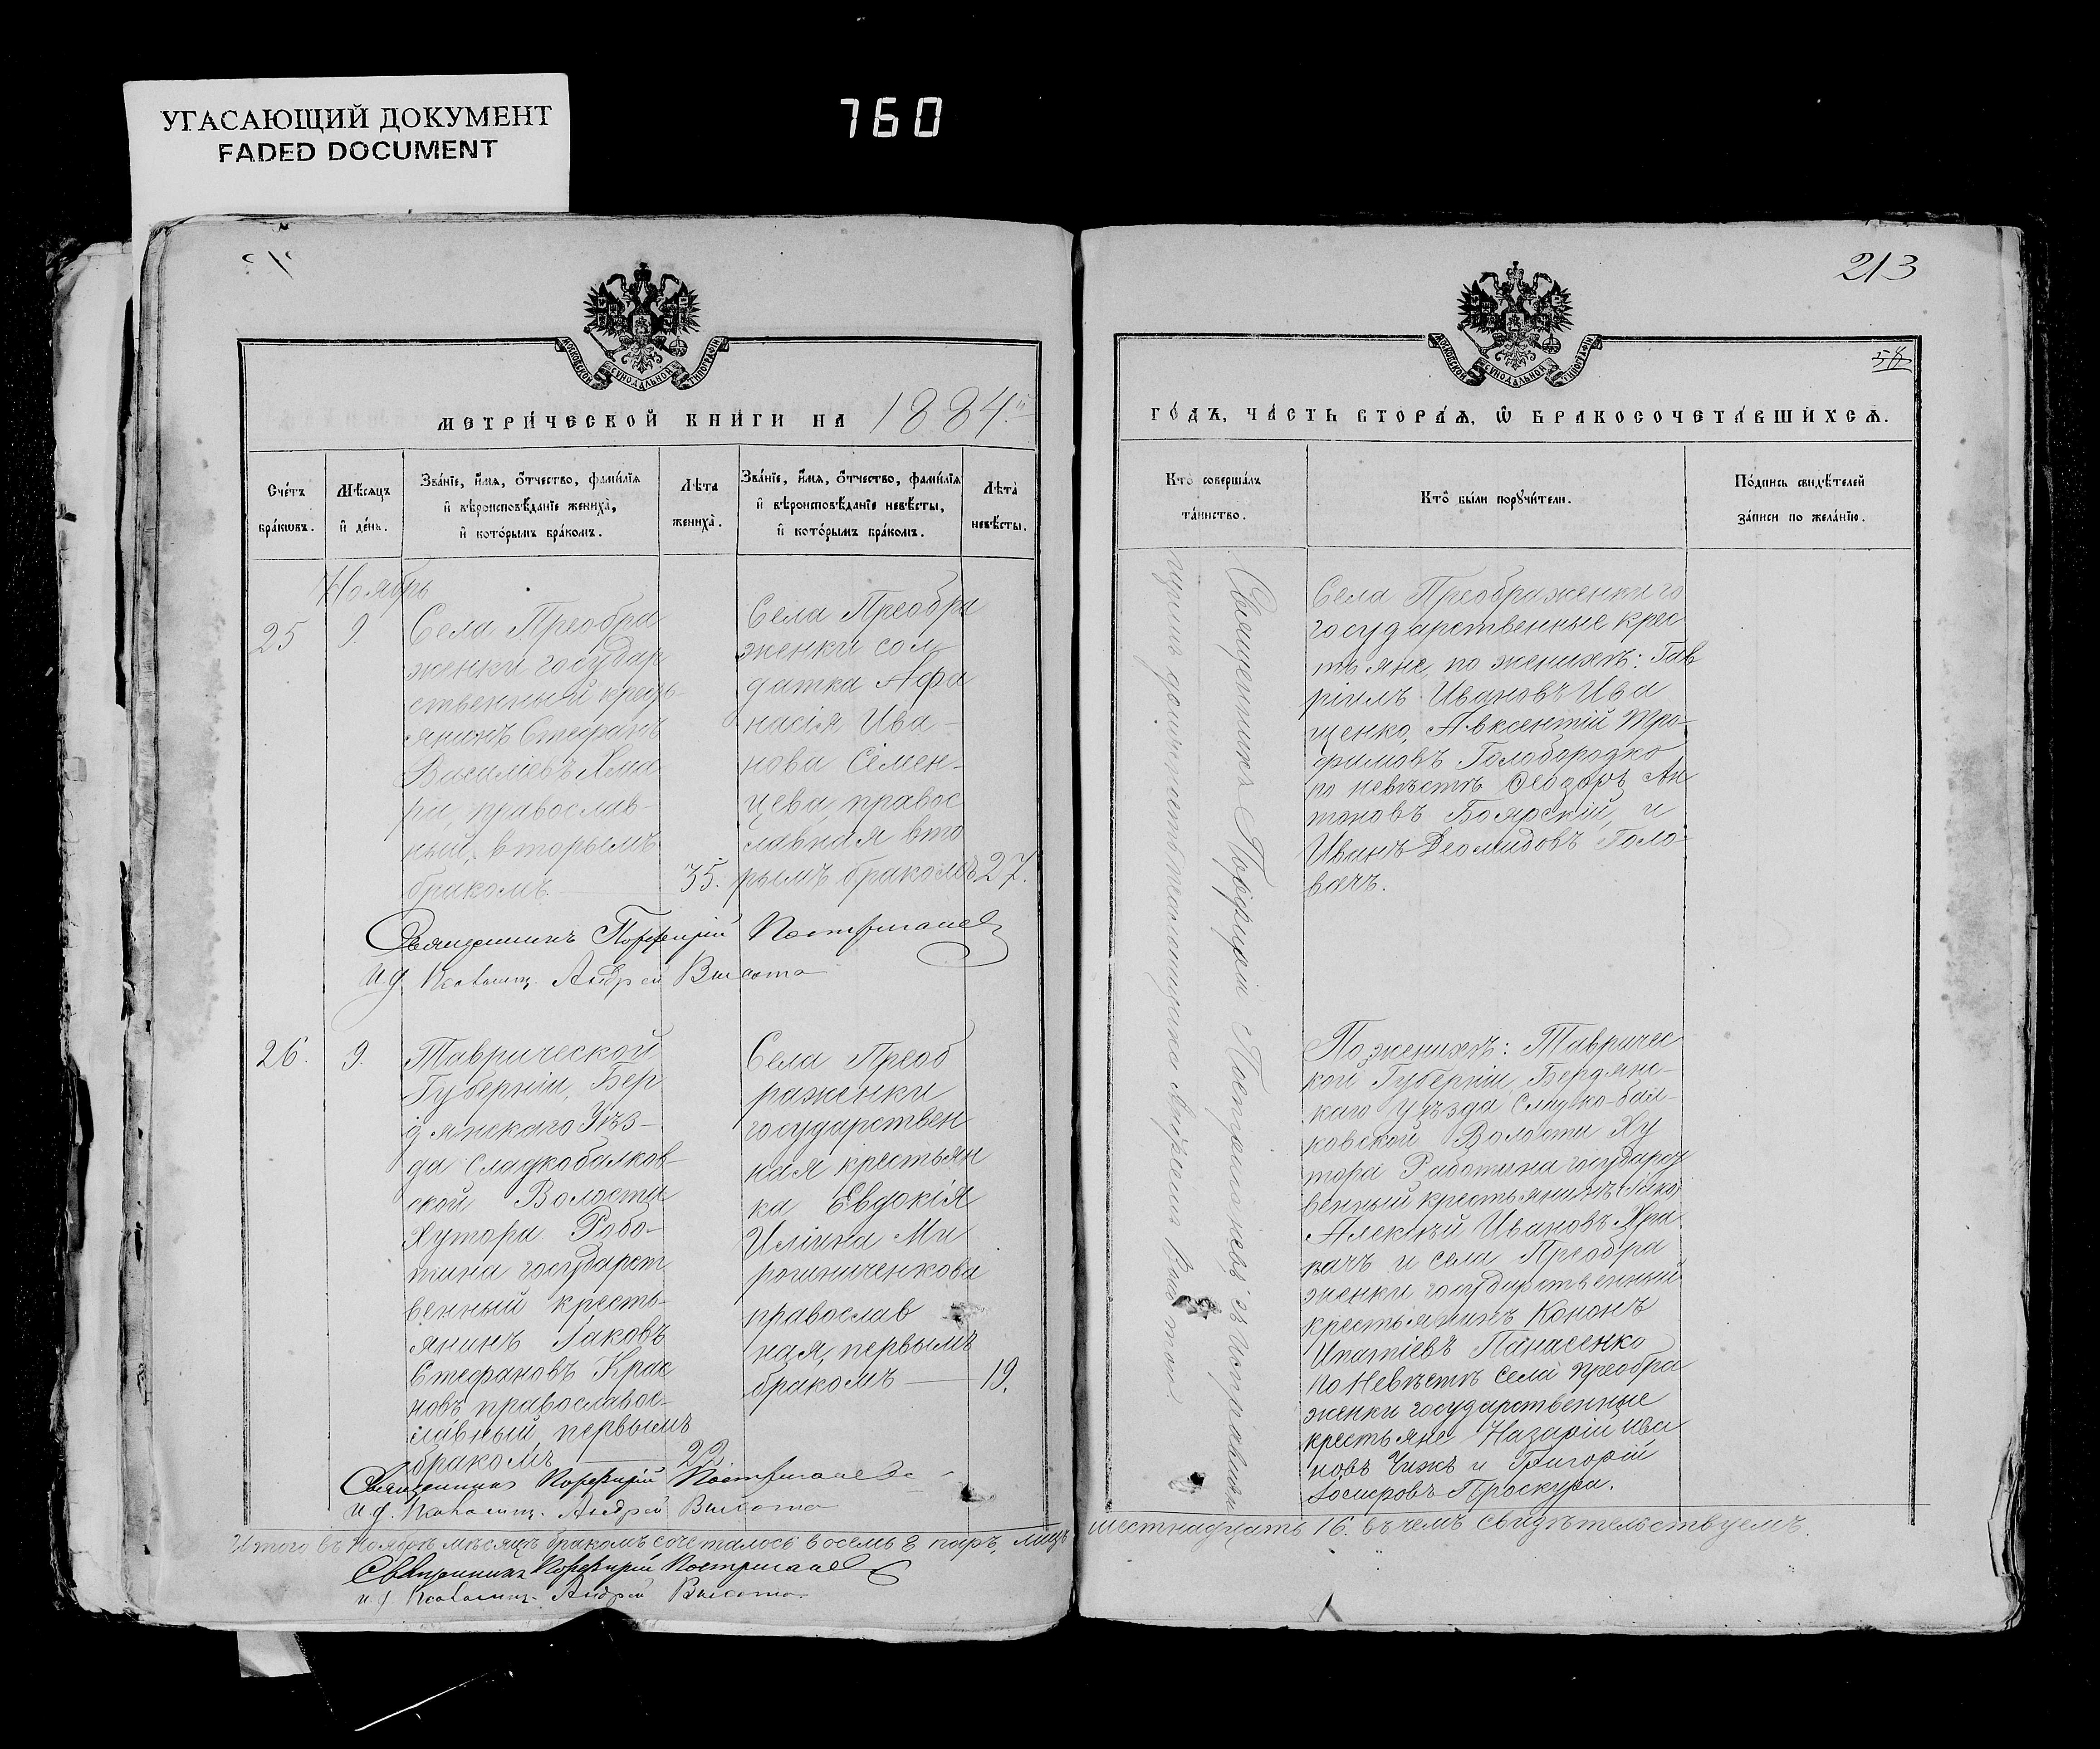 УГАСАЮЩИЙ ДОКУМЕНТ
FADED DOCUMENT
760
213
58
МОСКОВСКОЙ СѴНОДАЛЬНОЙ ТИПОГРАФІИ
МОСКОВСКОЙ СѴНОДАЛЬНОЙ ТИПОГРАФІИ
МЕТРИ́ЧЕСКОЙ КНИ́ГИ НА 1884й
ГО́ДЪ, ЧА́СТЬ ВТОРА́Я, Ѡ БРАКОСОЧЕТА́ВШИХСЯ.
Сче́тъ бра́кѡвъ.
Мѣ́сяцъ и де́нь.
Зва́нїе, и́мя, о́тчество, фами́лїя
и вѣроисповѣ́данїе жениха̀,
и кото́рымъ бра́комъ.
Лѣ́та жениха̀.
Зва́нїе, и́мя, о́тчество, фами́лїя
и вѣроисповѣ́данїе невѣ́сты,
и кото́рымъ бра́комъ.
Лѣ́та невѣ́сты.
Кто̀ соверша́лъ
та́инство.
Кто̀ бы́ли поручи́тели.
По́дпись свидѣ́телей
за́писи по жела́нїю.
Ноябрь
25
9.
Села Преобра
женки государ
ственный крест
янинъ Стефанъ
Василіевъ
православ-
ный, вторымъ
бракомъ.
35.
Села Преобра
женки сол
датка Афа
насія Ива-
нова Сімен-
цева, правос
лавная вто
рымъ бракомъ
27.
Священникъ Порфирій
Села Преображенки го
государственные крес
тьяне, по женихѣ: Гав
ріилъ Ивановъ Ива
щенко, Авксентій Тро-
фимовъ Голобородко
по невѣстѣ Ѳеодоръ Ан
тоновъ Боярскій, и
Иванъ Деомидовъ Голо-
вачъ.
Священникъ Порфирій
и.д. Псаломщ. Андрей Высота
26.
9.
Таврической
Губерніи, Бер
дянскаго Уѣз-
да Сладкобалков-
ской Волости
Хутора Робо-
тина государст
венный кресть-
янинъ Іаковъ
Стефановъ Крас
новъ православос-
лавный, первымъ
бракомъ
22.
Села Преоб
раженки
государствен
ная крестьян
ка Евдокія
Иліина Ми
рошниченкова
православ
ная, первымъ
бракомъ
19.
По женихѣ: Тавричес
кой Губерніи, Бердян-
каго Уѣзда Сладко-бал-
ковской Волости Ху
тора Работина государст
венный крестьянинъ
Алексѣй Ивановъ
и села Преобра
женки государственный
крестьянинъ Кононъ
Ипатіевъ Панасенко
по Невѣстѣ села Преобра
женки государственные
крестьяне Назарій Ива
новъ Чижъ и Григорій
Іосифовъ Проскура.
Священникъ Порфирій
и.д. Псаломщ. Андрей Высота
Итого въ Ноябрѣ мѣсяцѣ бракомъ сочеталось восемь 8 паръ, лицъ шестнадцать 16. въ чемъ свидѣтельствуемъ.
Священникъ Порфирій
и.д. Псаломщ. Андрей Высота